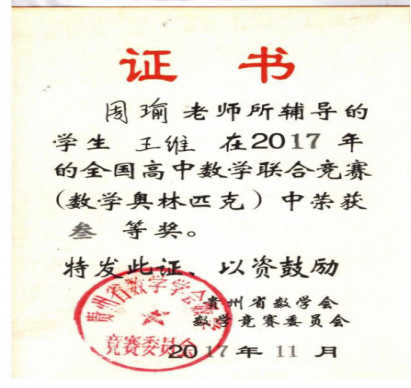 证 书
周瑜老师所辅导的
学生 王维 在2017 年
的全国高中数学联合竞赛
(数学奥林匹克)中荣获
叁 等奖。
特发此证、以资鼓励
贵州省数学会
数学竞赛委员会
2017年11月
贵州省数学学会数学
竞赛委员会